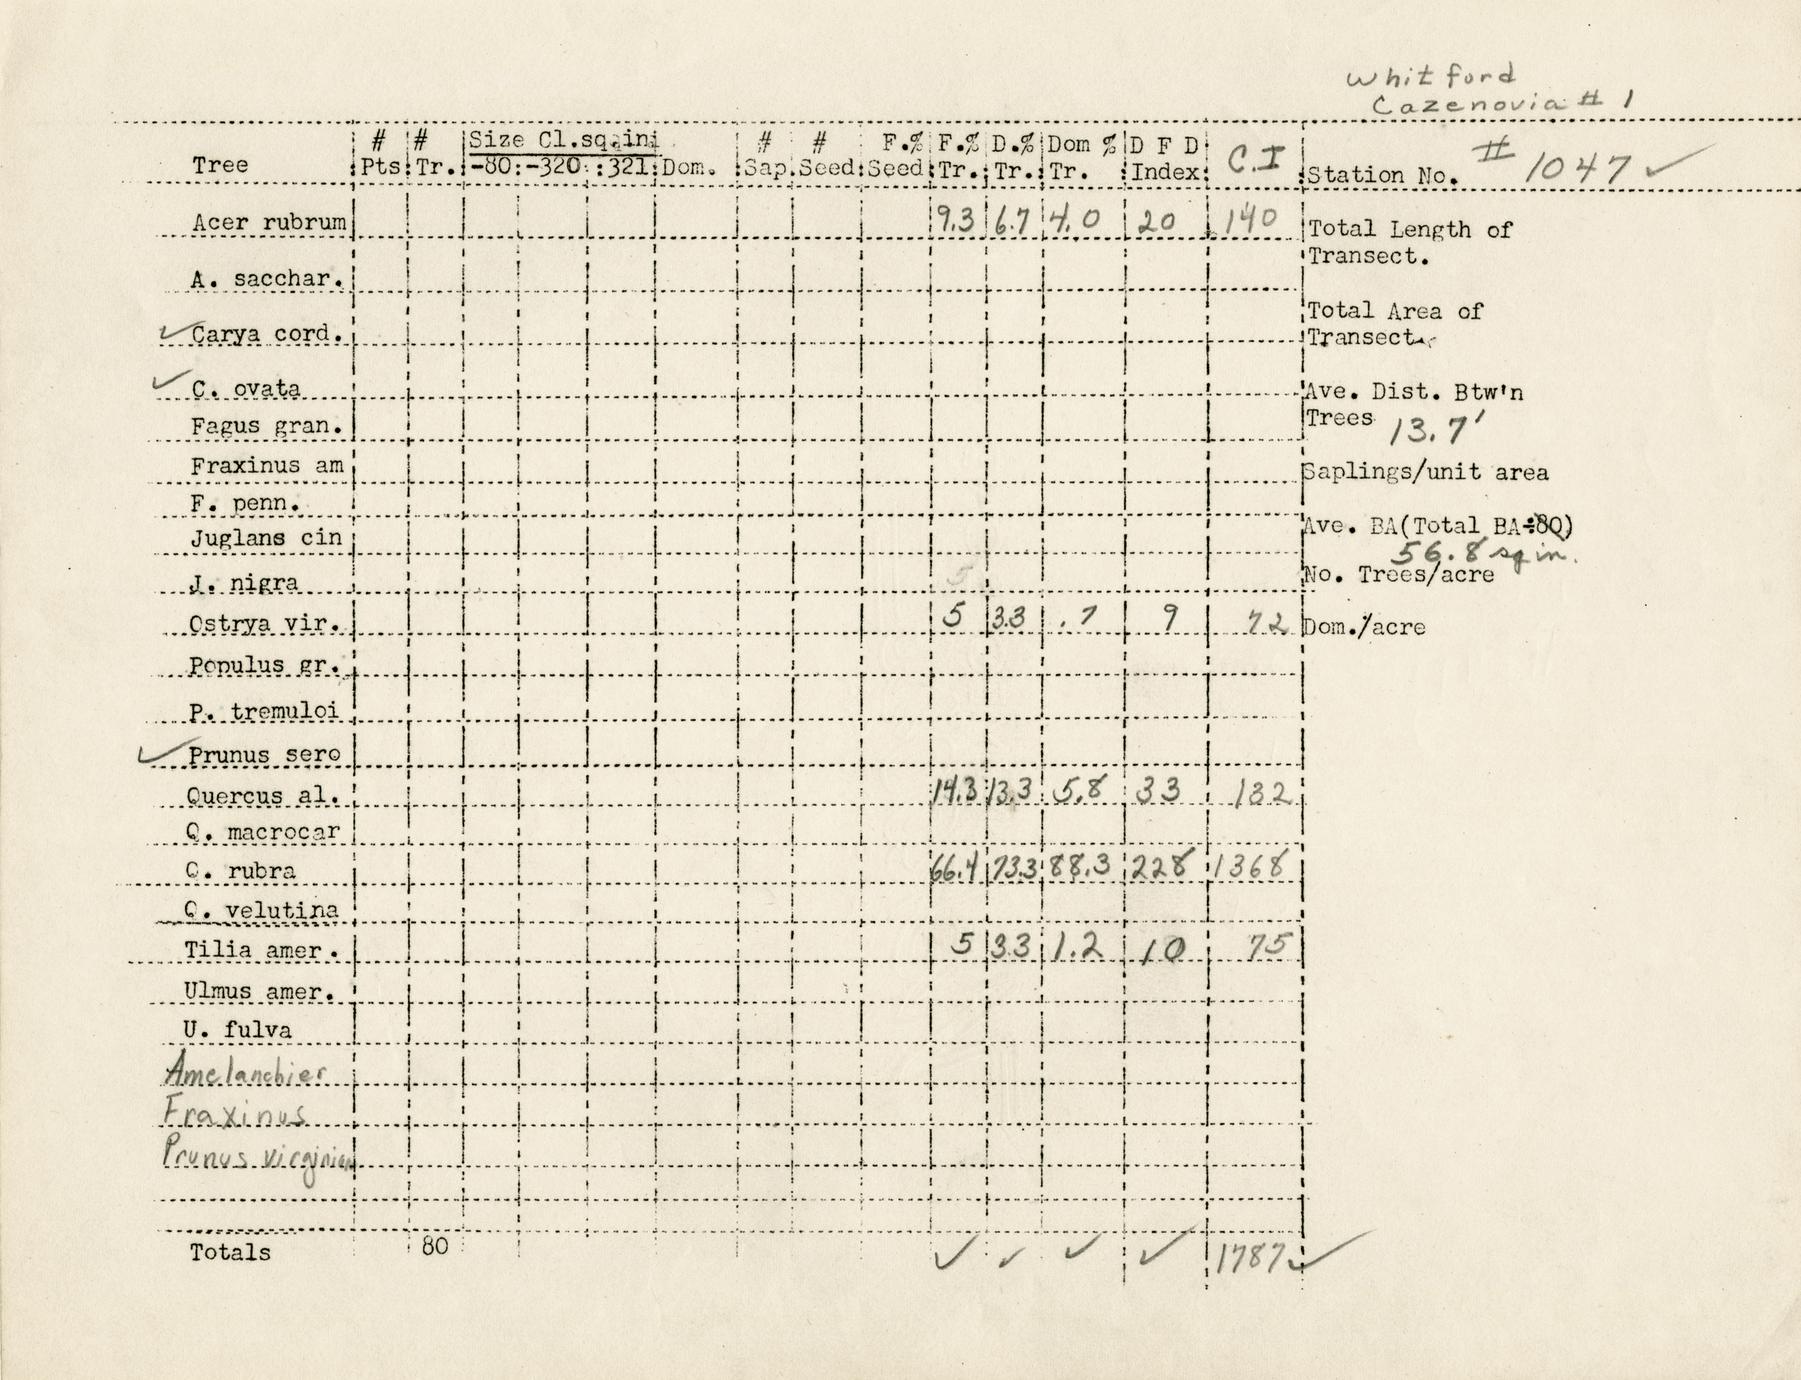 Whitford
Cazenovia # 1
# # Size Cl.sq.in # # F.% F.% D.% Dom % D F D C.I
Tree Pts Tr. -80 -320 321 Dom. Sap. Seed Seed Tr. Tr. Tr. Index Station No. # 1047 ✓
Acer rubrum 9.3 6.7 4.0 20 140
Total Length of
Transect.
A. sacchar.
Total Area of
Transect
✓ Carya cord.
✓ C. ovata
Ave. Dist. Btw'n
Trees 13.7'
Fagus gran.
Fraxinus am
Saplings/unit area
F. penn.
Juglans cin
Ave. BA(Total BA÷80)
56.8 sq in.
J. nigra
No. Trees/acre
Ostrya vir. 5 3.3 .7 9 72
Dom./acre
Populus gr.
P. tremuloi
✓ Prunus sero
Quercus al. 14.3 13.3 5.8 33 132
Q. macrocar
Q. rubra 66.4 73.3 88.3 228 1368
Q. velutina
Tilia amer. 5 3.3 1.2 10 75
Ulmus amer.
U. fulva
Amelanchier
Fraxinus
Prunus virginian
Totals 80 ✓ ✓ ✓ ✓ 1787 ✓